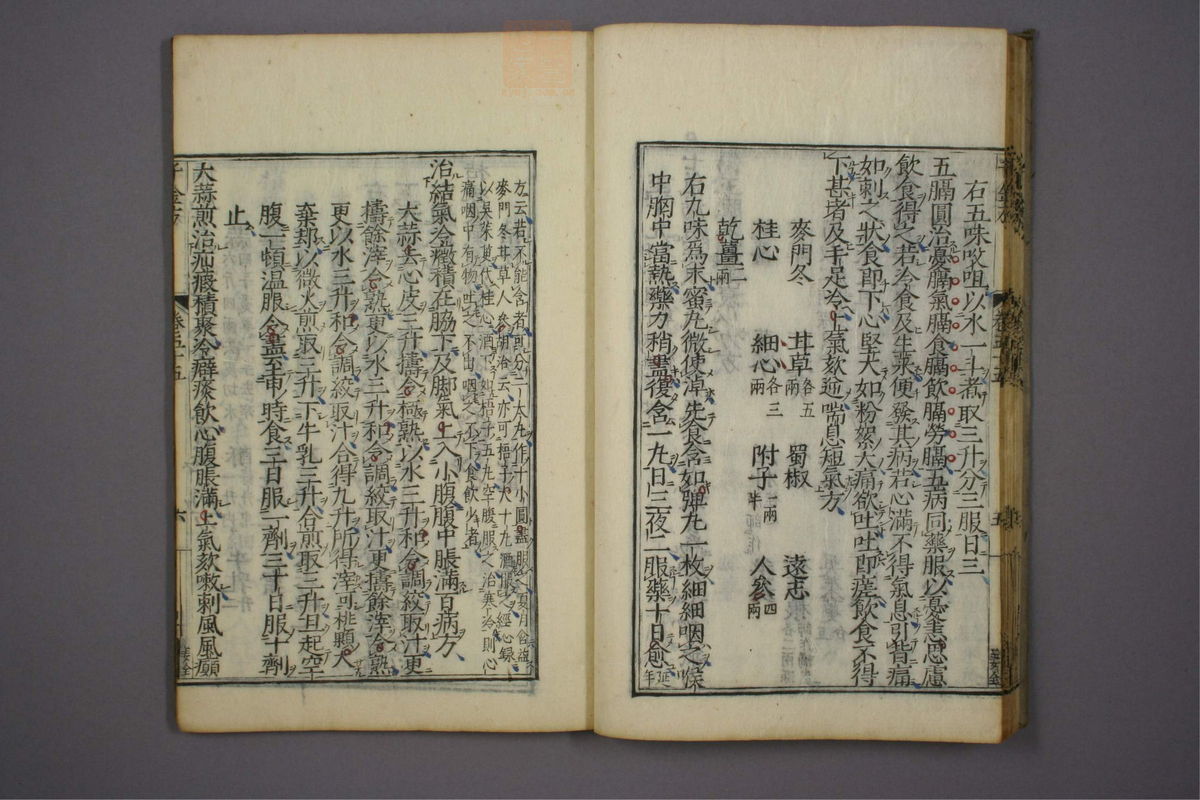 右五味㕮咀以水一斗煮取三升分三服日三
五膈圓治憂膈氣膈食膈飲膈勞膈五病同藥服以憂恚思慮
飲食得之若冷食及生菜便發其病苦心滿不得氣息引背痛
如刺之狀食即下心堅大如粉絮大痛欲吐吐即瘥飲食不得
下甚者及手足冷上氣欬逆喘息短氣方
麥門冬 甘草各五兩 蜀椒 遠志
桂心 細心各三兩 附子一兩半 人參四兩
乾薑二兩
右九味爲末蜜丸微使淖先食含如彈丸一枚細細咽之喉
中胸中當熱藥力稍盡復含一丸日三夜二服藥十日愈延年
方云若不能含者可分一大丸作十小圓盡服之夏月含益
麥門冬甘草人參胡洽云亦可梧子大十丸酒服之經心錄
以吳茱萸代桂心酒服如梧子五丸空腹服之治寒冷則心
痛咽中有物吐之不出咽之不下食飲少者
治結氣冷癥積在脇下及脚氣上入小腹腹中脹滿百病方
大蒜去心皮三升擣令極熟以水三升和令調絞取汁更
擣餘滓令熟更以水三升和令調絞取汁更擣餘滓令熟
更以水三升和令調絞取汁合得九升所得滓可桃顆大
棄却以微火煎取三升下牛乳三升合煎取三升旦起空
腹一頓温服令盡至申時食三日服一劑三十日服十劑
止
大蒜煎治疝瘕積聚冷癖痰飲心腹脹滿上氣欬嗽刺風風癲
千金方
卷五十五
六